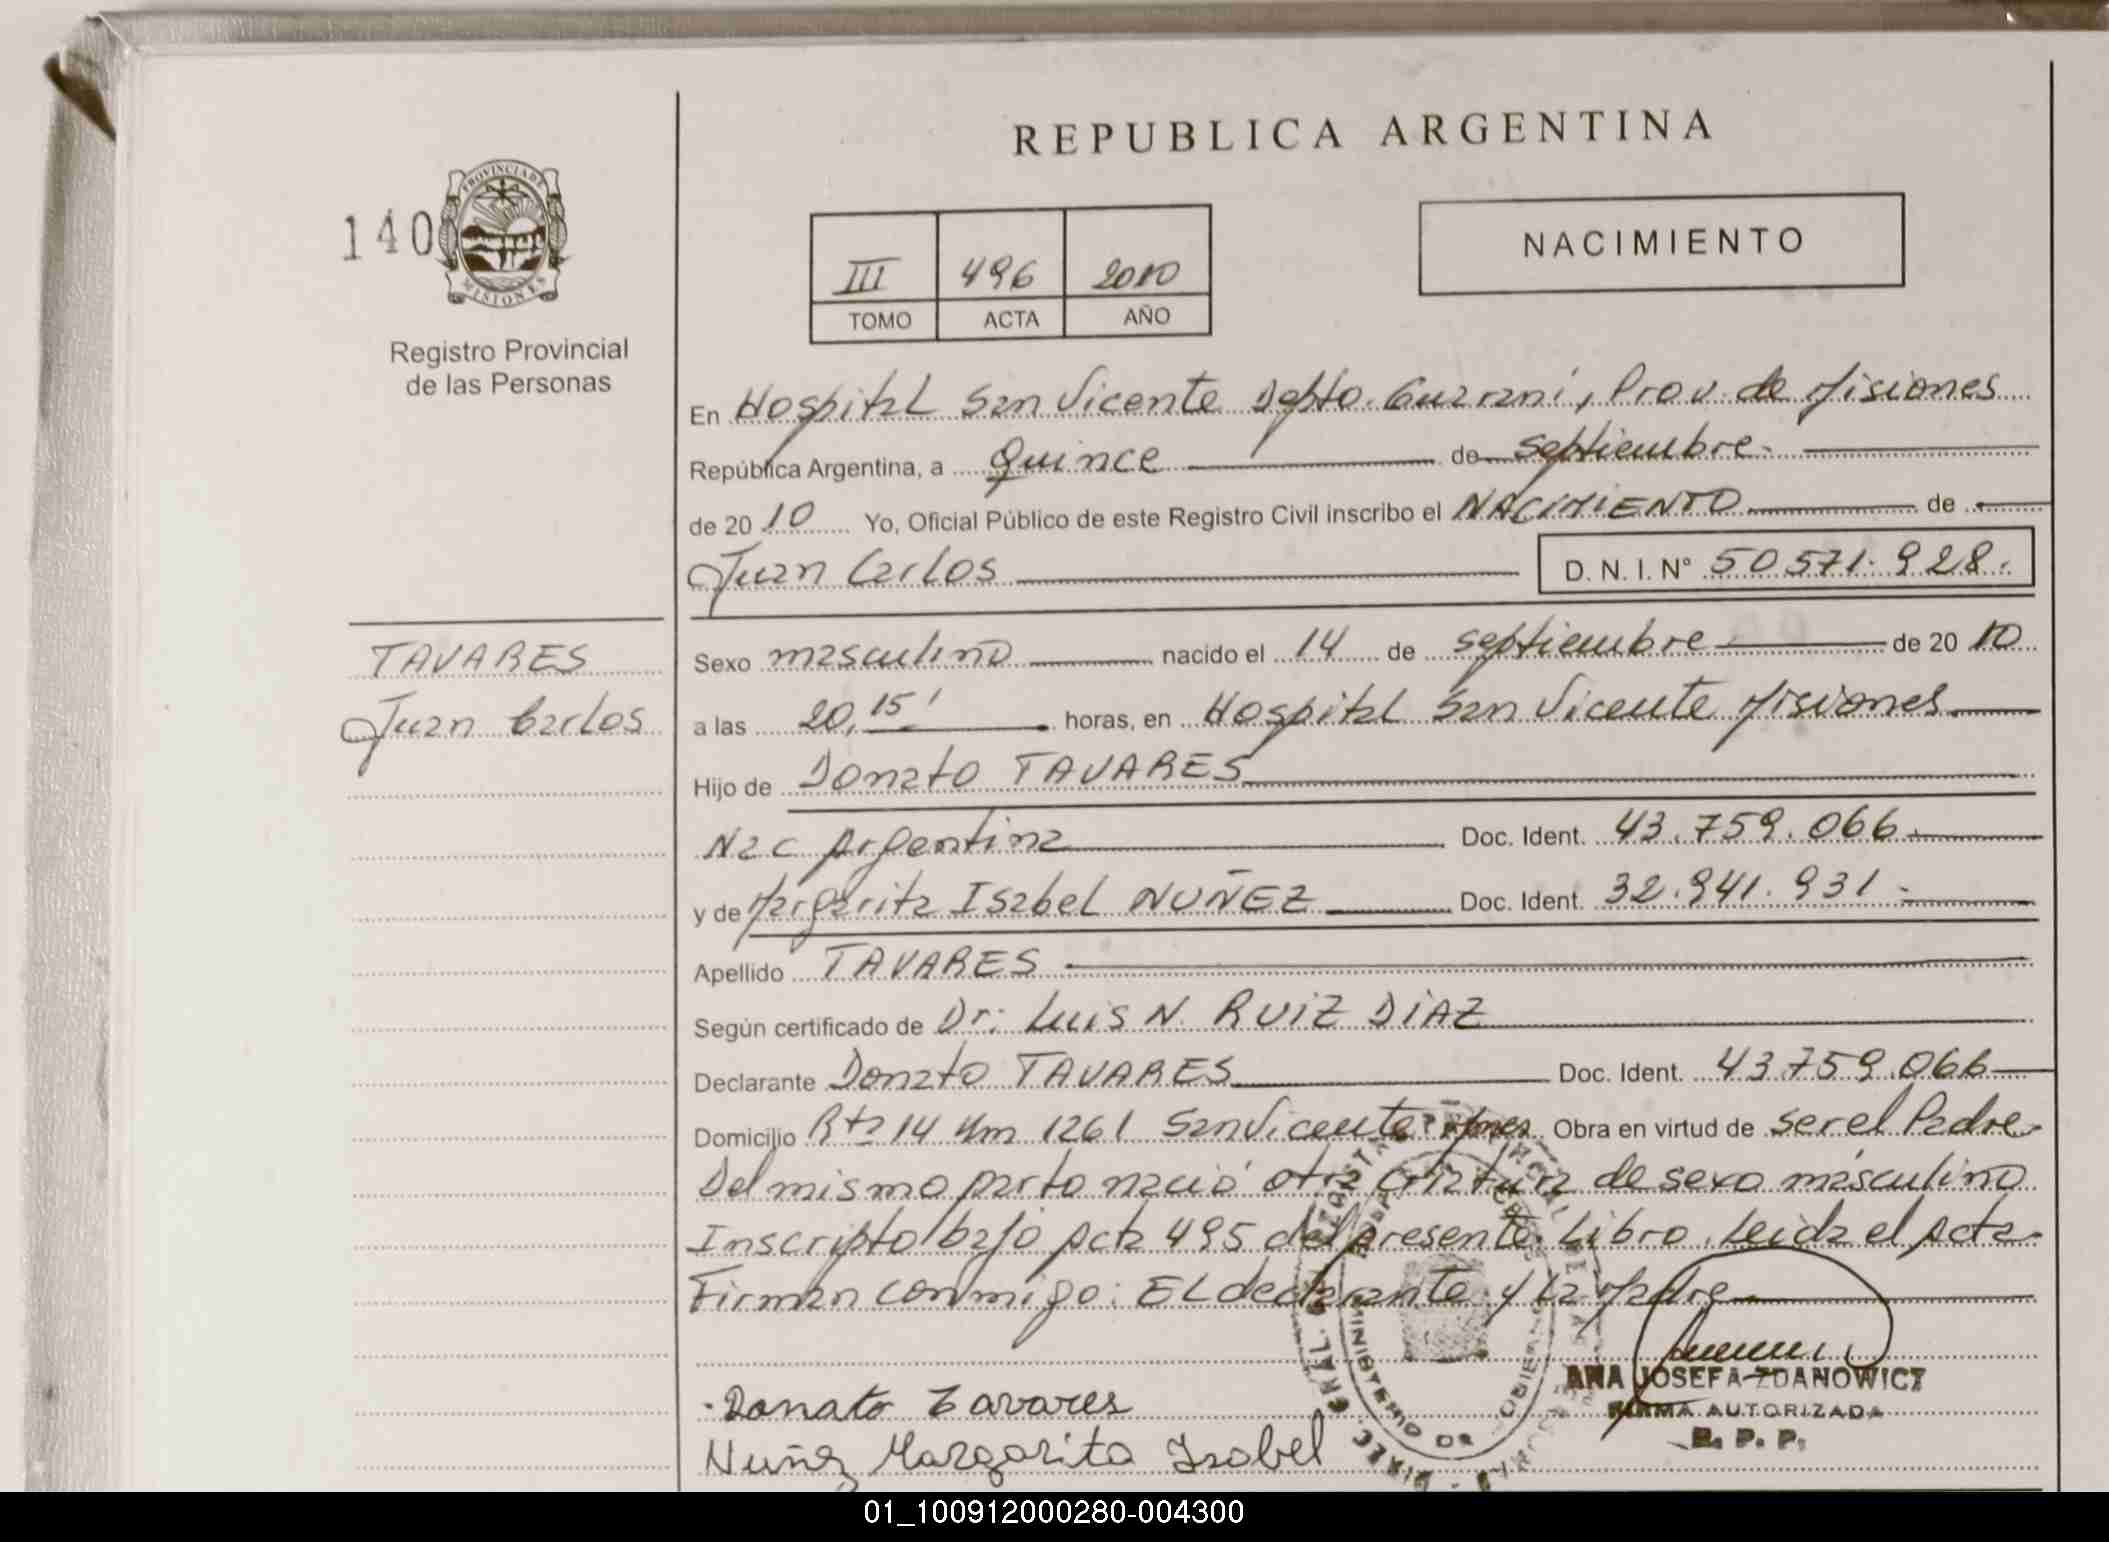 REPUBLICA ARGENTINA
140
PROVINCIA DE
MISIONES
Registro Provincial
de las Personas
III 496 2010
TOMO ACTA AÑO
NACIMIENTO
En Hospital San Vicente Depto. Guarani, Prov. de Misiones
República Argentina, a Quince de septiembre.
de 2010 Yo, Oficial Público de este Registro Civil inscribo el NACIMIENTO de
Juan Carlos D.N.I. N° 50.571.928.
TAVARES
Juan Carlos
Sexo masculino nacido el 14 de septiembre de 2010
a las 20,15' horas, en Hospital San Vicente Misiones
Hijo de Donato TAVARES
Nac Argentina Doc. Ident. 43.759.066
y de Margarita Isabel NUÑEZ Doc. Ident. 32.941.931.
Apellido TAVARES
Según certificado de Dr: Luis N. RUIZ DIAZ
Declarante Donato TAVARES Doc. Ident. 43.759.066
Domicilio Rta 14 Km 1261 San Vicente Mnes Obra en virtud de ser el Padre.
Del mismo parto nació otra criatura de sexo masculino
Inscripto bajo Acta 495 del presente Libro. Leida el Acta
Firman conmigo: El declarante y la Madre
ANA JOSEFA ZDANOWICZ
FIRMA AUTORIZADA
R. P. P.
MINISTERIO DE GOBIERNO
Donato Tavares
Nuñez Margarita Isabel
01_100912000280-004300